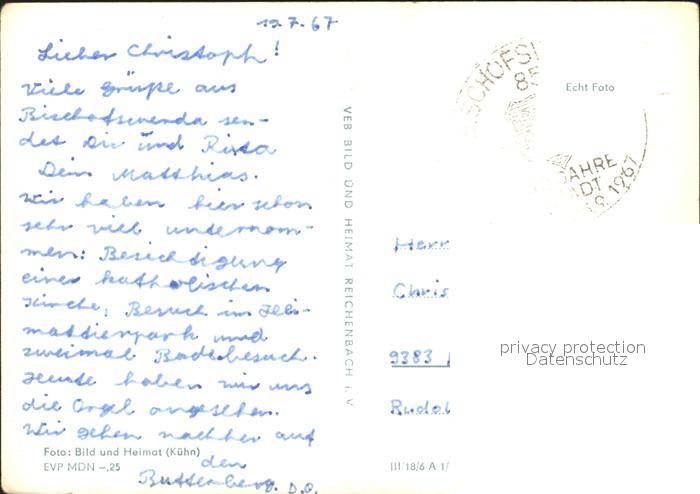 19.7.67
Lieber Christoph!
Viele Grüße aus
Bischofswerda sen-
det Dir und Rista
Dein Matthias.
Wir haben hier schon
sehr viel unternom-
men: Besichtigung
einer katholischen
Kirche, Besuch im
und
zweimal Badebesuch.
Heute haben wir uns
die Orgel angesehen.
Wir gehen nachher auf
den
Butterberg. D.O.
Foto: Bild und Heimat (Kühn)
EVP MDN –,25
VEB BILD UND HEIMAT REICHENBACH i. V
Echt Foto
SCHOFS
JAHRE
ADT
.9.1967
Herr
Chris
9383
Rudol
III/18/6 A 1/
privacy protection
Datenschutz